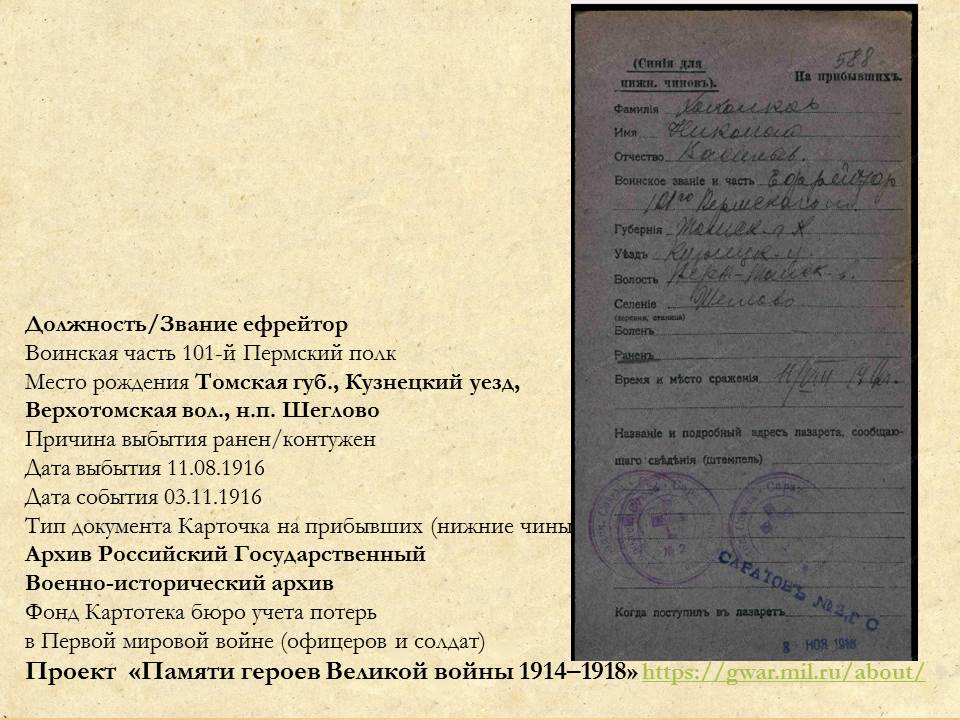 Должность/Звание ефрейтор
Воинская часть 101-й Пермский полк
Место рождения Томская губ., Кузнецкий уезд,
Верхотомская вол., н.п. Щеглово
Причина выбытия ранен/контужен
Дата выбытия 11.08.1916
Дата события 03.11.1916
Тип документа Карточка на прибывших (нижние чины
Архив Российский Государственный
Военно-исторический архив
Фонд Картотека бюро учета потерь
в Первой мировой войне (офицеров и солдат)
Проект «Памяти героев Великой войны 1914–1918» https://gwar.mil.ru/about/
588
(Синія для
нижн. чиновъ).
На прибывшихъ.
Фамилія
Имя Николай
Отчество Васильев.
Воинское званіе и часть Ефрейтор
101го Пермского п.
Губернія Томск. г.
Уѣздъ Кузнецк. у.
Волость Верх-Томск. в.
Селеніе Щеглово
(деревня, станица)
Боленъ
Раненъ
Время и мѣсто сраженія 11/VIII 1916г.
Названіе и подробный адресъ лазарета, сообщаю-
щаго свѣдѣнія (штемпель)
№ 2
САРАТОВЪ №2, Г С
Когда поступилъ въ лазаретъ
3 НОЯ 1916